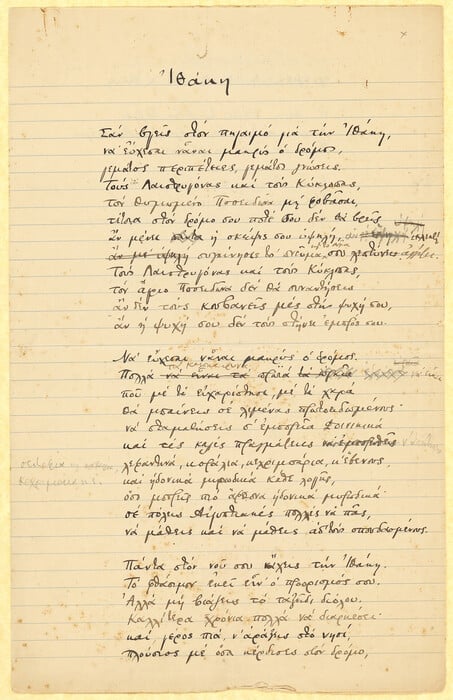 Ἰθάκη
Σὰν βγεῖς στὸν πηγαιμὸ γιὰ τὴν Ἰθάκη,
νὰ εὔχεσαι νἆναι μακρὺς ὁ δρόμος,
γεμάτος περιπέτειες, γεμάτος γνώσεις.
Τοὺς Λαιστρυγόνας καὶ τοὺς Κύκλωπας,
τὸν θυμωμένο Ποσειδῶνα μὴ φοβᾶσαι,
τέτοια στὸν δρόμο σου ποτέ σου δὲν θὰ βρεῖς
ἂν μένει ἡ σκέψις σου ὑψηλή,
ἂν συγκίνησις τὸ πνεῦμα σου ἀγγίζει.
Τοὺς Λαιστρυγόνας καὶ τοὺς Κύκλωπας,
τὸν ἄγριο Ποσειδῶνα δὲν θὰ συναντήσεις
ἂν δὲν τοὺς κουβανεῖς μὲς στὴν ψυχή σου,
ἂν ἡ ψυχή σου δὲν τοὺς στήνει ἐμπρός σου.
Νὰ εὔχεσαι νἆναι μακρὺς ὁ δρόμος.
Πολλὰ
ποῦ μὲ τί εὐχαρίστησι, μὲ τί χαρὰ
θὰ μπαίνεις σὲ λιμένας πρωτοειδωμένους·
νὰ σταματήσεις σ' ἐμπορεῖα Φοινικικὰ
καὶ τὲς καλὲς πραγμάτειες
σεντέφια
λεχριμπάρια κ' ἔβενους
καὶ ἡδονικὰ μυρωδικὰ κάθε λογῆς,
ὅσο μπορεῖς πιὸ ἄφθονα ἡδονικὰ μυρωδικά·
σὲ πόλεις Αἰγυπτιακὲς πολλὲς νὰ πᾷς,
νὰ μάθεις καὶ νὰ μάθεις ἀπ' τοὺς σπουδασμένους.
Πάντα στὸν νοῦ σου νἄχεις τὴν Ἰθάκη.
Τὸ φθάσιμον ἐκεῖ εἶν' ὁ προορισμός σου.
Ἀλλὰ μὴ βιάζεις τὸ ταξεῖδι διόλου.
Καλλίτερα χρόνια πολλὰ νὰ διαρκέσει·
καὶ γέρος πιὰ ν' ἀράξεις στὸ νησί,
πλούσιος μὲ ὅσα κέρδισες στὸν δρόμο,